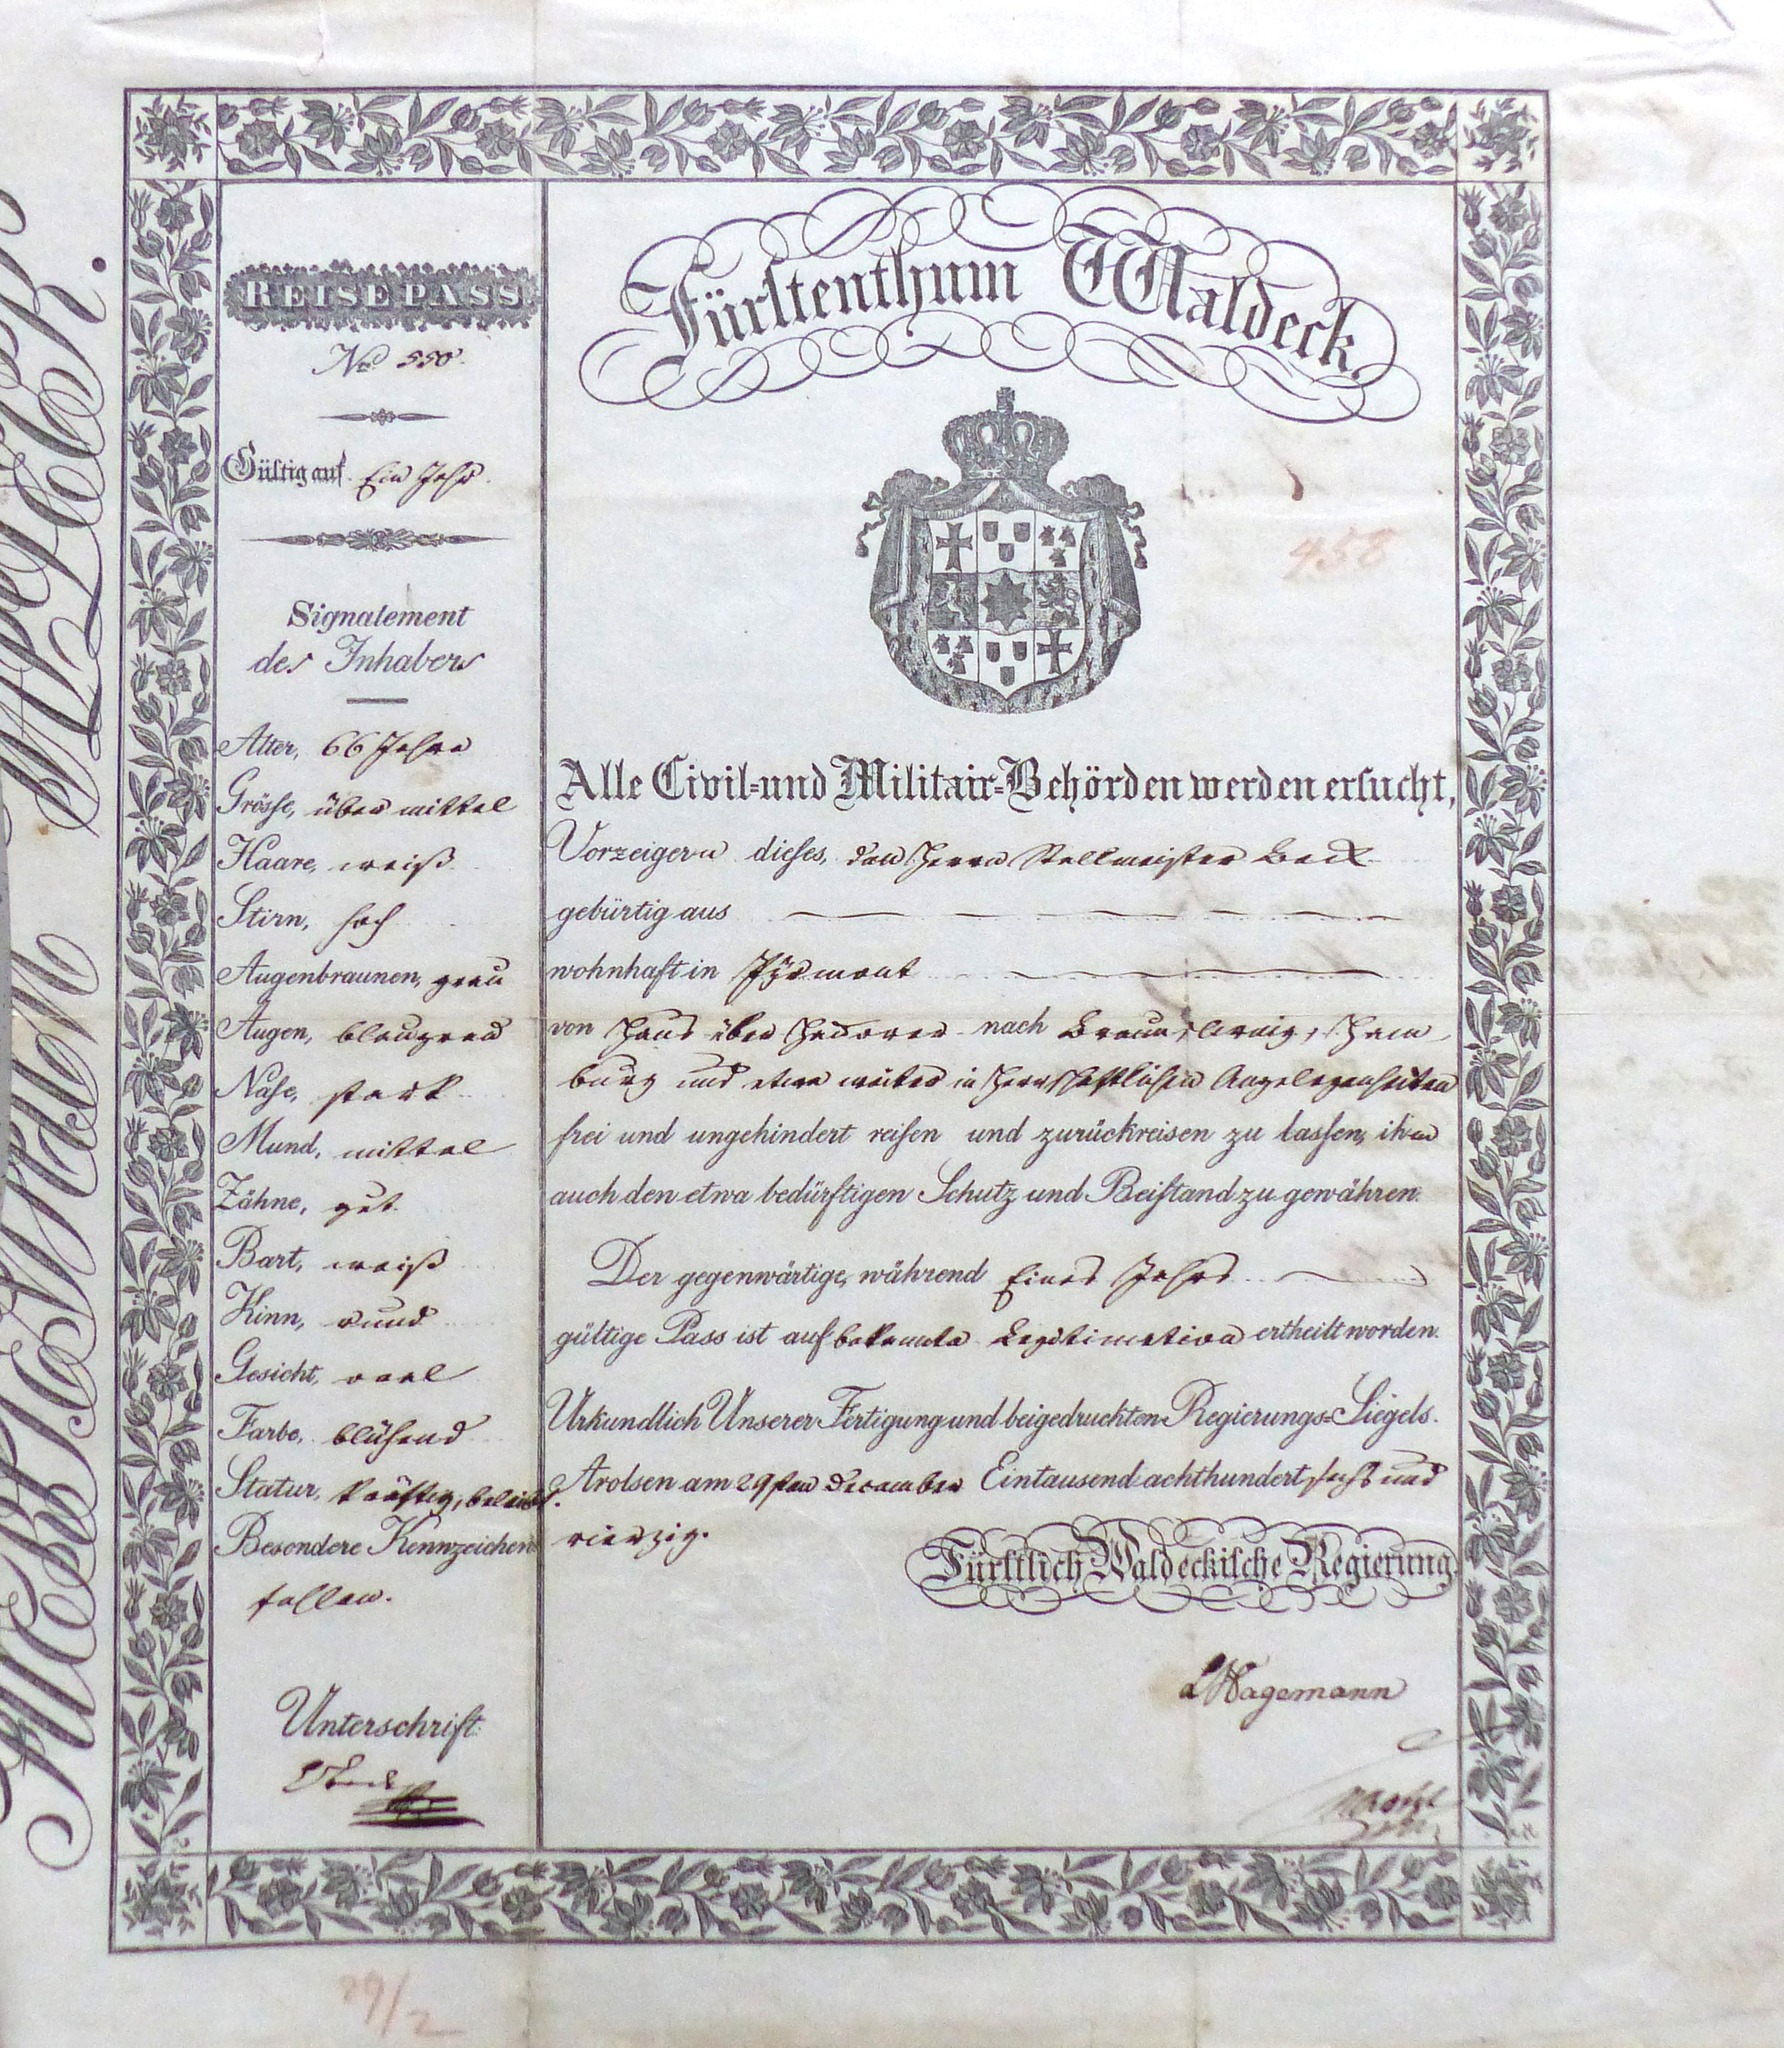 REISEPASS
No. 550.
Gültig auf Ein Jahr.
Signalement
des Inhabers
Alter, 66 Jahre
Grösse, über mittel
Haare, weiß
Stirn, hoch
Augenbraunen, grau
Augen, blaugrau
Nase, stark
Mund, mittel
Zähne, gut
Bart, weiß
Kinn, rund
Gesicht, oval
Farbe, blühend
Statur, kräftig, beleibt.
Besondere Kennzeichen
fallen.
Unterschrift:
Fürstenthum Waldeck.
458
Alle Civil- und Militair-Behörden werden ersucht,
Vorzeigern dieses, den Herrn Stallmeister Beck
gebürtig aus
wohnhaft in Pyrmont
von Haus über Hannover nach Braunschweig, Ham
burg und etwa weiter in Herrschaftlichen Angelegenheiten
frei und ungehindert reisen und zurückreisen zu lassen, ihm
auch den etwa bedürftigen Schutz und Beistand zu gewähren.
Der gegenwärtige, während Eines Jahrs
gültige Pass ist auf bekannte Legitimation ertheilt worden.
Urkundlich Unserer Fertigung und beigedruckten Regierungs-Siegels.
Arolsen am 29sten December Eintausend achthundert sechs und
vierzig.
Fürstlich Waldeckische Regierung.
Hagemann
29/2